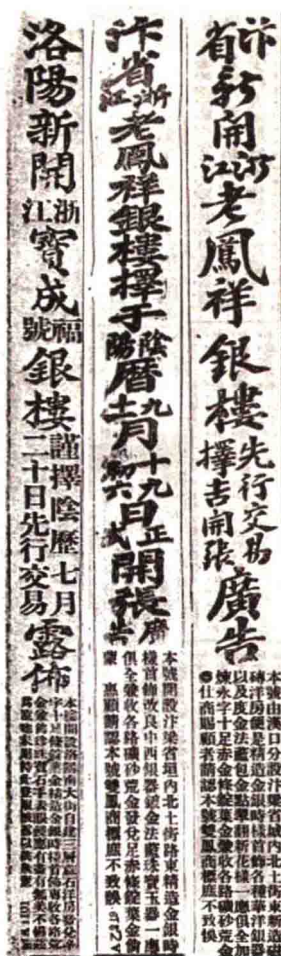 汴省新開浙江老鳳祥銀樓先行交易擇吉開張廣告
本號由漢口分設汴梁省城內北土街東新造磚
洋房便是精造金銀時樣首飾各種華洋銀器
以及度金法藍包金點翠翻新花樣一應俱全加
煉永字十足赤金條錠葉金兼收各路礦砂荒金
仕商賜顧者請認本號雙鳳商標庶不致悞
汴省浙江老鳳祥銀樓擇于陰陽曆九十一月十九初六日正式開張廣告
本號開設汴梁省垣內北土街路東精造金銀時
樣首飾改良中西銀器鍍金法藍珠寶玉器一應
俱全兼收各路礦砂荒金發兌足赤條錠葉金倘
蒙惠顧請認本號雙鳳商標庶不致悞
洛陽新開浙江寶成福號銀樓謹擇陰歷七月二十日先行交易露佈